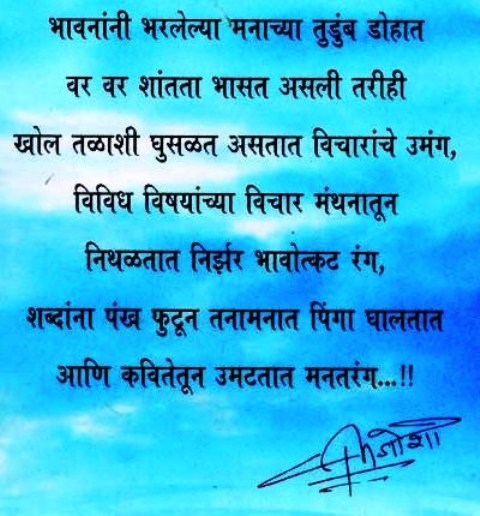 भावनांनी भरलेल्या मनाच्या तुडुंब डोहात
वर वर शांतता भासत असली तरीही
खोल तळाशी घुसळत असतात विचारांचे उमंग,
विविध विषयांच्या विचार मंथनातून
निथळतात निर्झर भावोत्कट रंग,
शब्दांना पंख फुटून तनामनात पिंगा घालतात
आणि कवितेतून उमटतात मनतरंग...!!